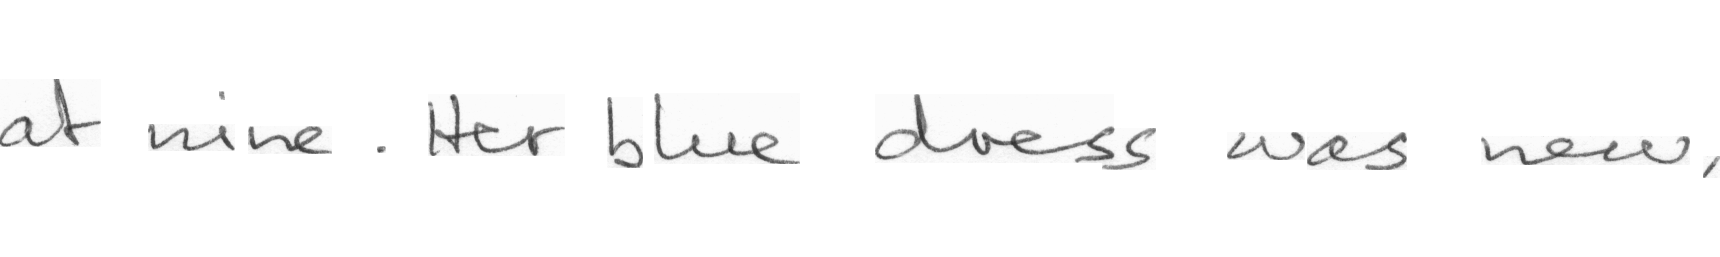 at nine. Her blue dress was new,